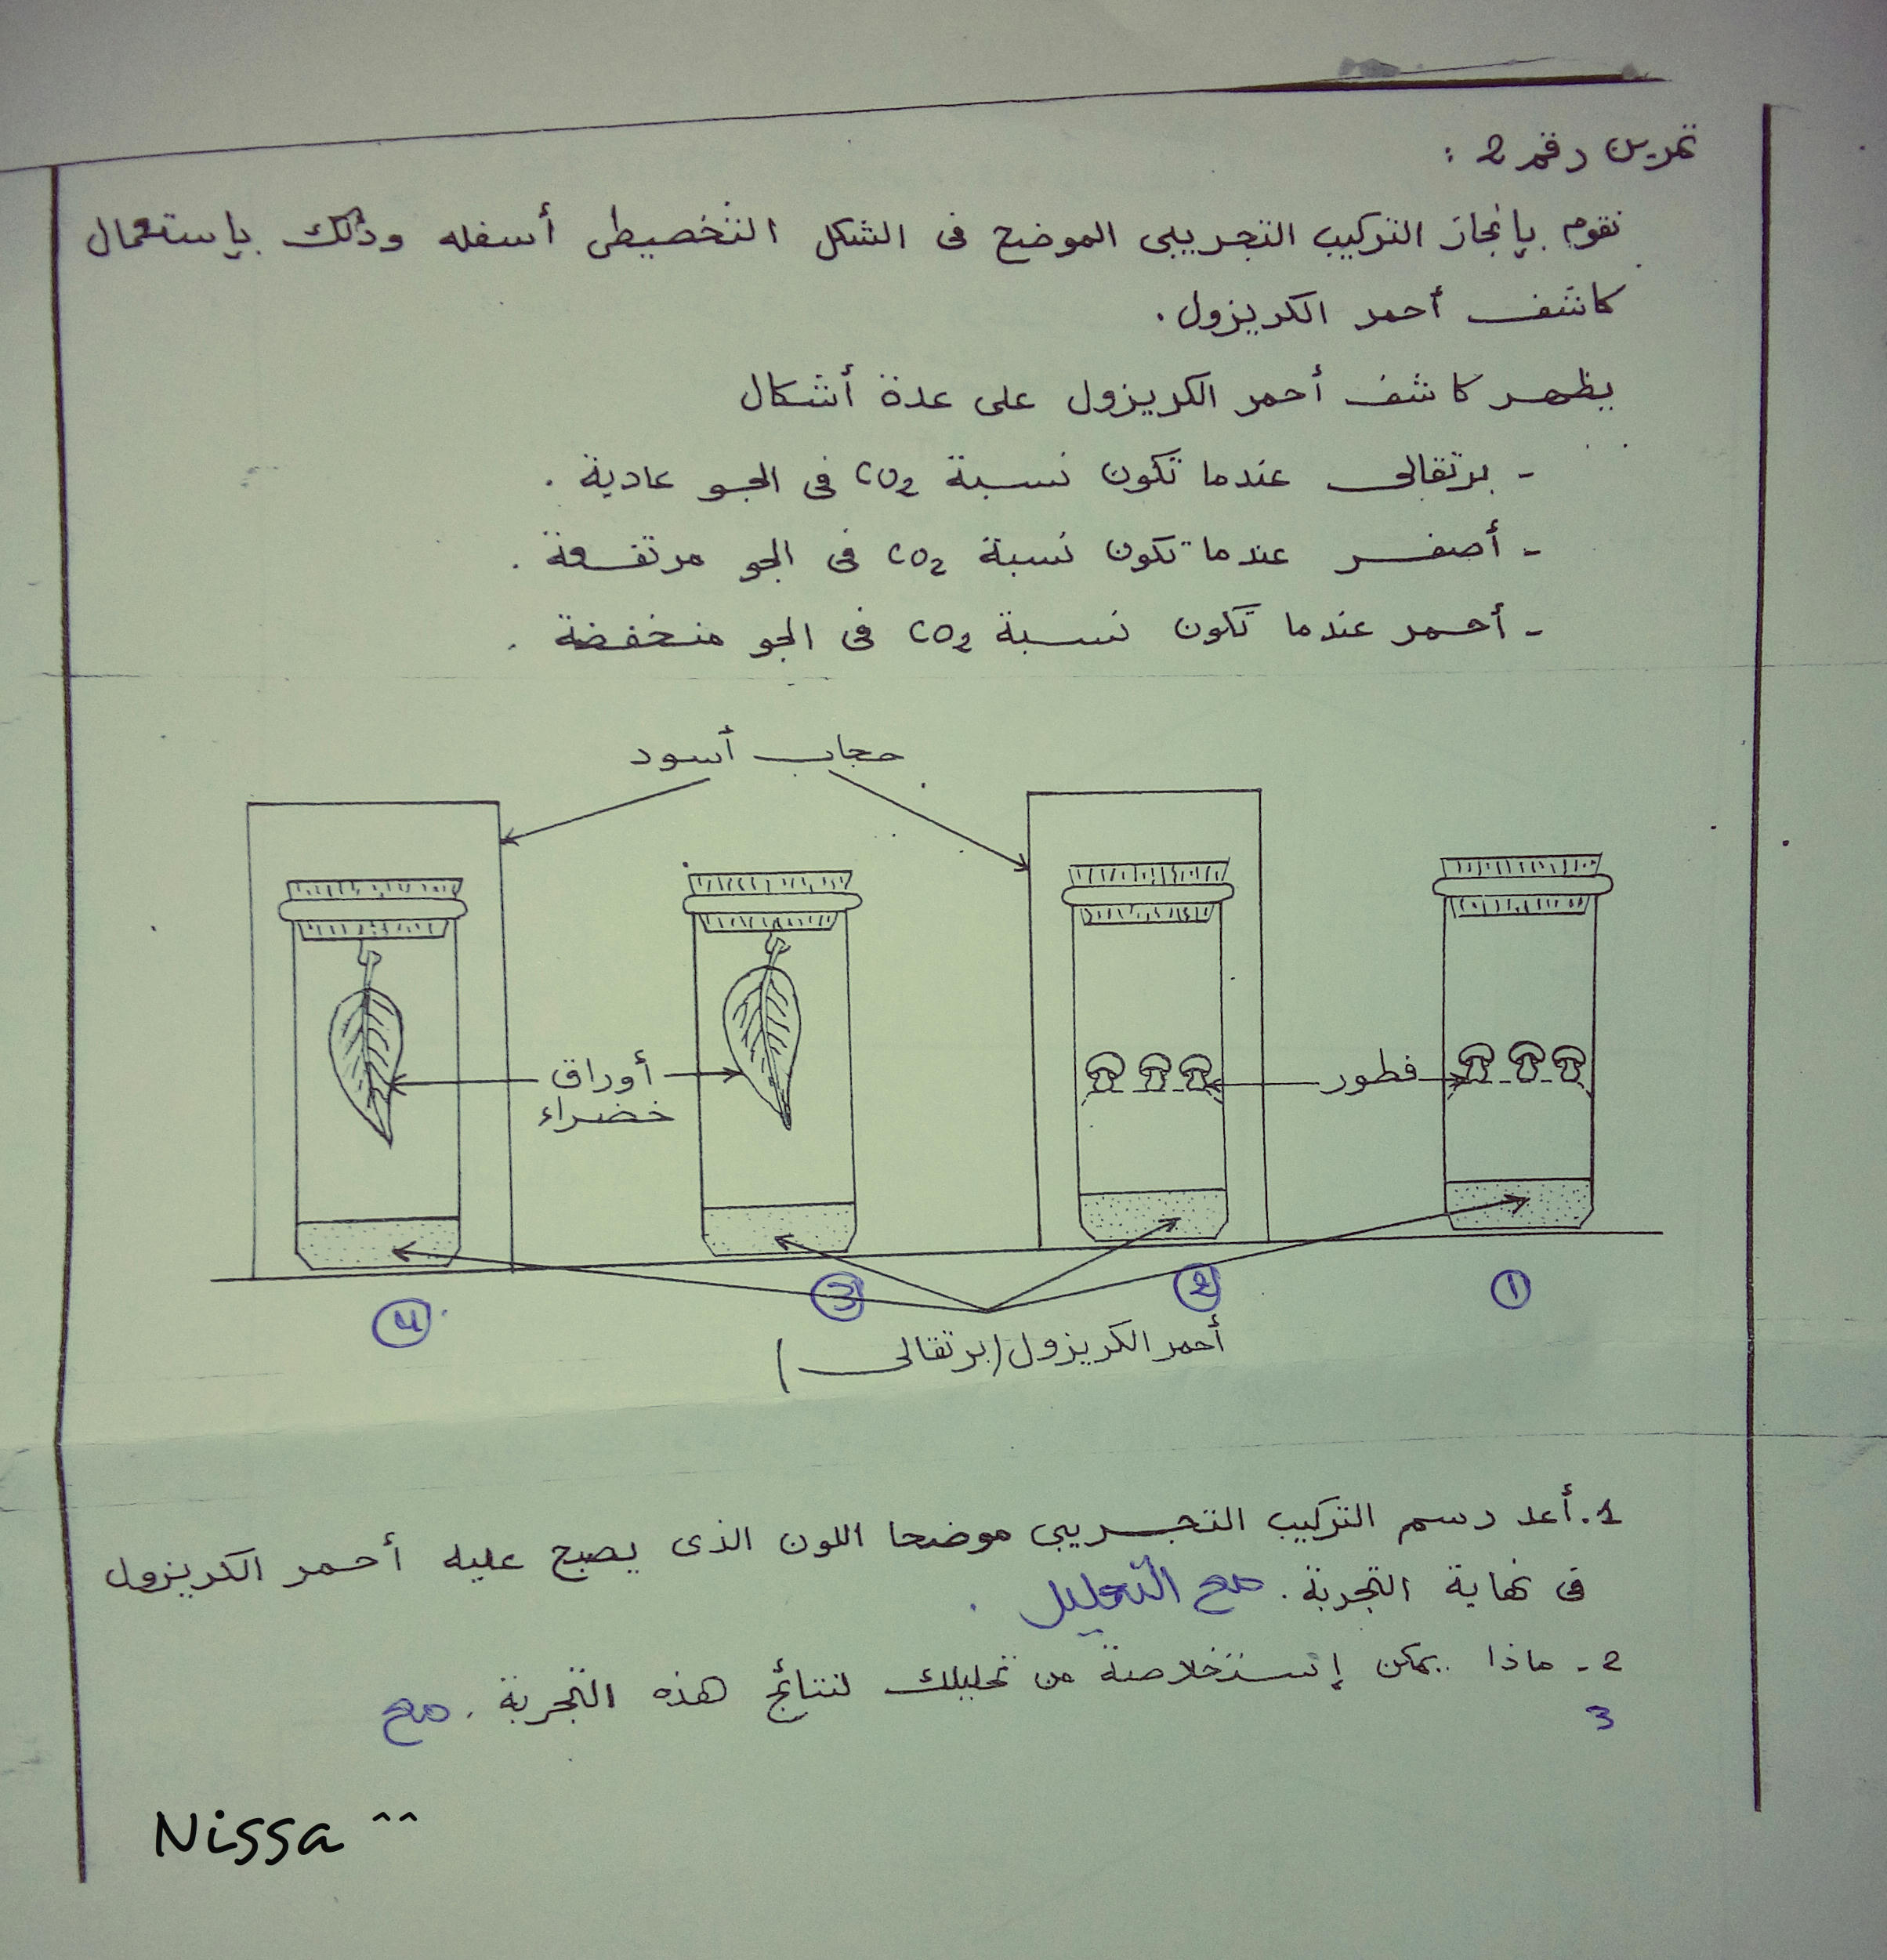 تمرين رقم 2 :
نقوم بإنجاز التركيب التجريبي الموضح في الشكل التخصيطي أسفله وذلك بإستعمال
كاشف أحمر الكريزول.
يظهر كاشف أحمر الكريزول على عدة أشكال
- برتقالي عندما تكون نسبة CO2 في الجو عادية .
- أصفر عندما تكون نسبة CO2 في الجو مرتفعة .
- أحمر عندما تكون نسبة CO2 في الجو منخفضة .
حجاب أسود
فطور
أوراق
خضراء
1
2
3
4
أحمر الكريزول (برتقالي)
1. أعد رسم التركيب التجريبي موضحا اللون الذي يصبح عليه أحمر الكريزول
في نهاية التجربة. مع التعليل .
2- ماذا يمكن إستخلاصة من تحليلك لنتائج هذه التجربة . مع
3
Nissa ^^